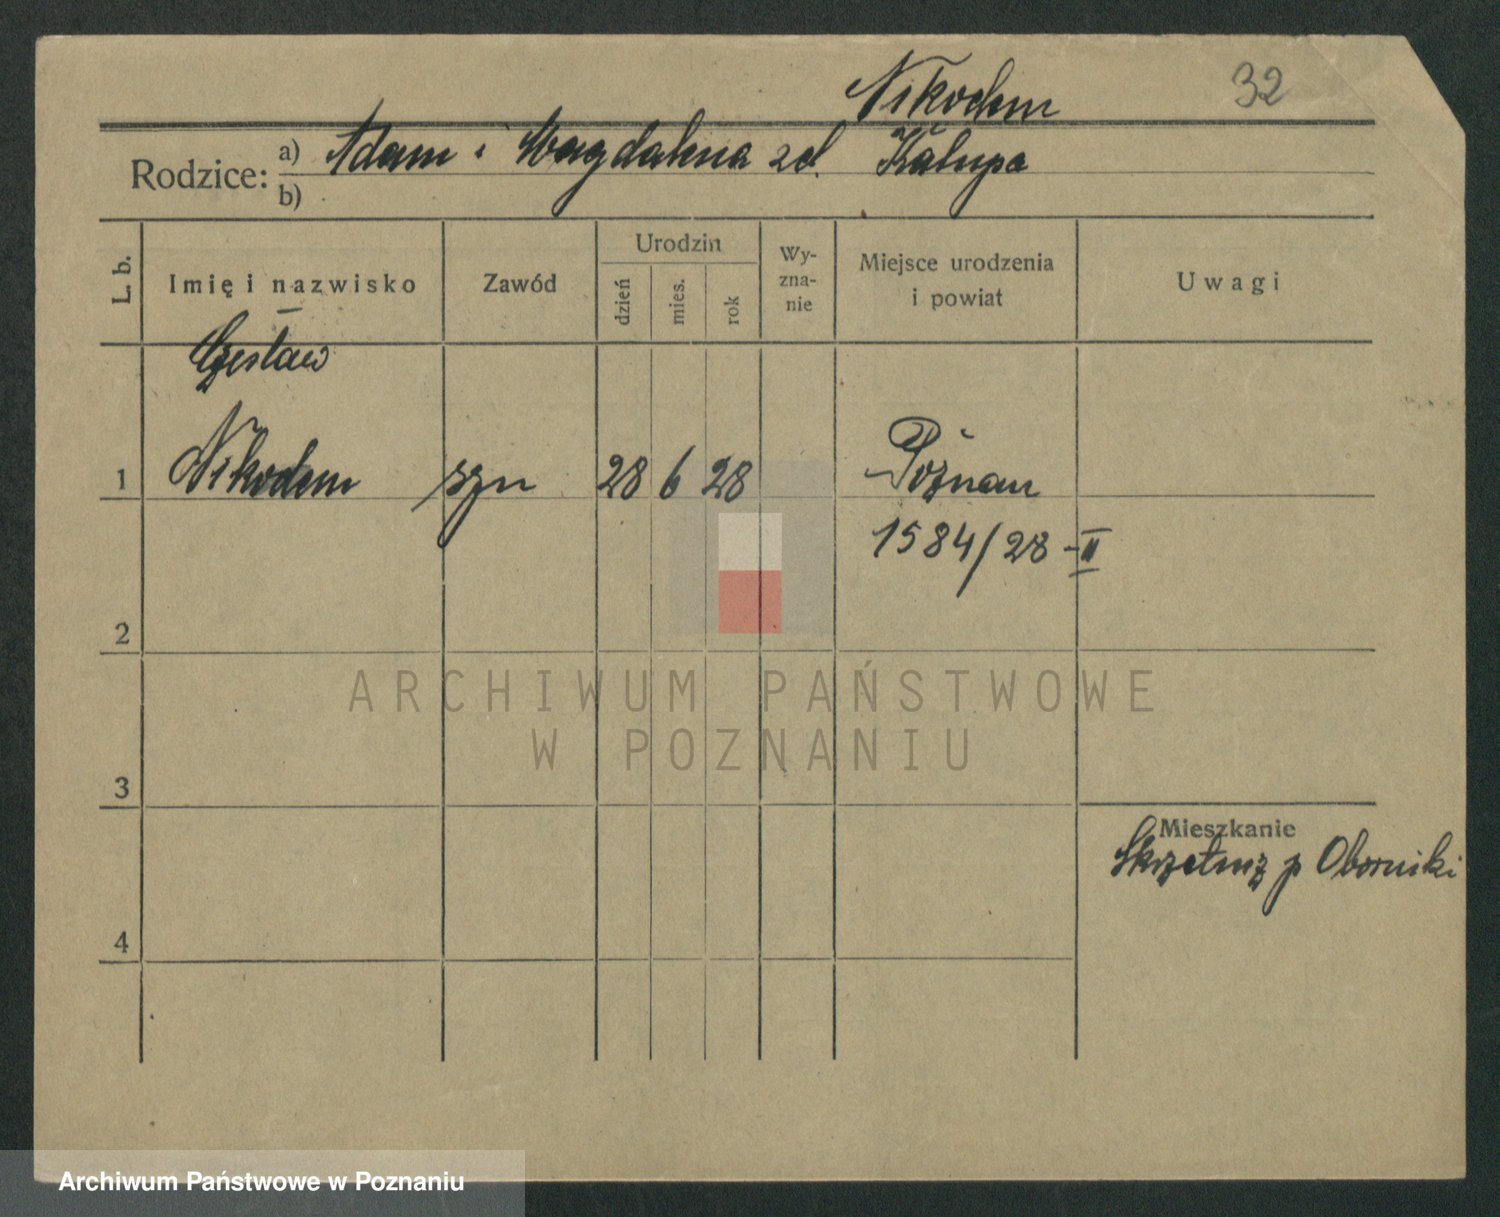 Nikodem 32
Rodzice: a) Adam i Magdalena zd. Kałupa
b)
L. b. Imię i nazwisko Zawód Urodzin dzień mies. rok Wy-zna-nie Miejsce urodzenia i powiat Uwagi
Czesław
1 Nikodem syn 28 6 28 Poznań
1584/28-II
2
ARCHIWUM PAŃSTWOWE
W POZNANIU
3
Mieszkanie
p Oborniki
4
Archiwum Państwowe w Poznaniu